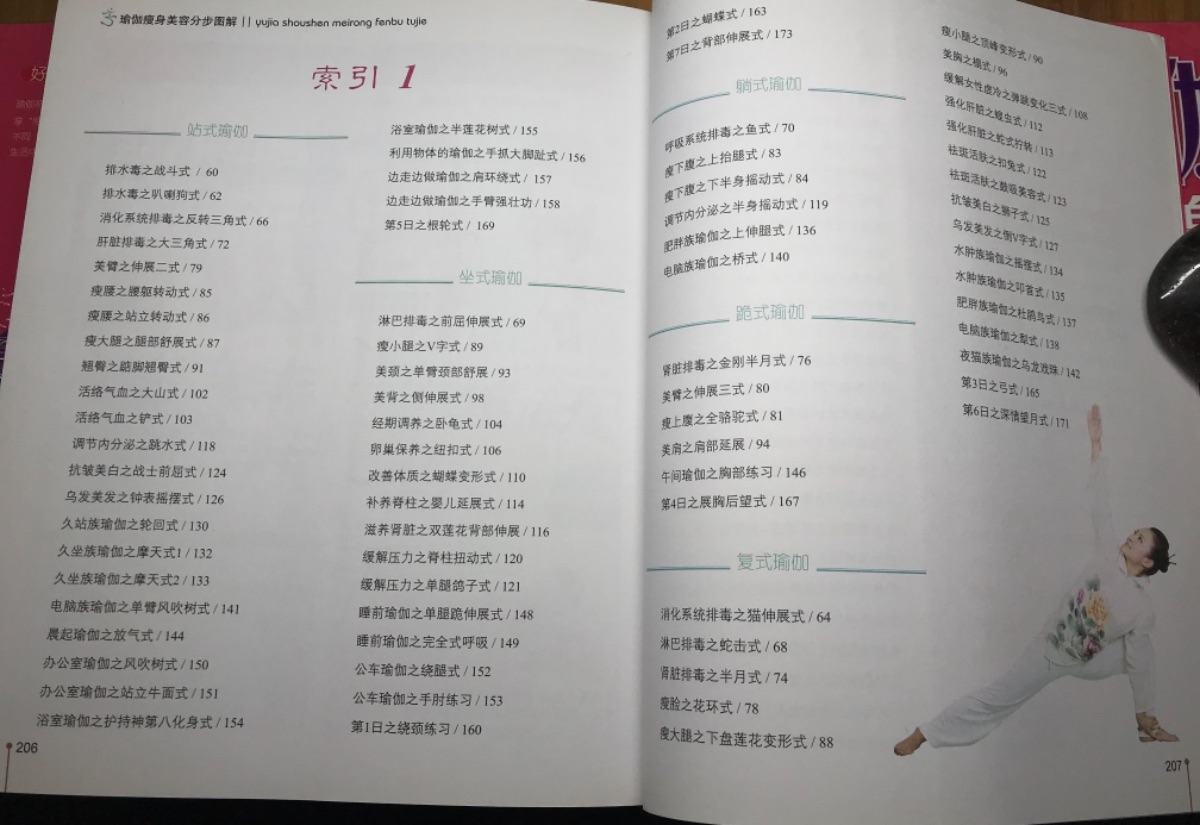 瑜伽瘦身美容分步图解 || yujia shoushen meirong fenbu tujie
索引 1
站式瑜伽
排水毒之战斗式 / 60
排水毒之叭喇狗式 / 62
消化系统排毒之反转三角式 / 66
肝脏排毒之大三角式 / 72
美臂之伸展二式 / 79
瘦腰之腰躯转动式 / 85
瘦腰之站立转动式 / 86
瘦大腿之腿部舒展式 / 87
翘臀之踮脚翘臀式 / 91
活络气血之大山式 / 102
活络气血之铲式 / 103
调节内分泌之跳水式 / 118
抗皱美白之战士前屈式 / 124
乌发美发之钟表摇摆式 / 126
久站族瑜伽之轮回式 / 130
久坐族瑜伽之摩天式1 / 132
久坐族瑜伽之摩天式2 / 133
电脑族瑜伽之单臂风吹树式 / 141
晨起瑜伽之放气式 / 144
办公室瑜伽之风吹树式 / 150
办公室瑜伽之站立牛面式 / 151
浴室瑜伽之护持神第八化身式 / 154
206
浴室瑜伽之半莲花树式 / 155
利用物体的瑜伽之手抓大脚趾式 / 156
边走边做瑜伽之肩环绕式 / 157
边走边做瑜伽之手臂强壮功 / 158
第5日之根轮式 / 169
坐式瑜伽
淋巴排毒之前屈伸展式 / 69
瘦小腿之V字式 / 89
美颈之单臂颈部舒展 / 93
美背之侧伸展式 / 98
经期调养之卧龟式 / 104
卵巢保养之纽扣式 / 106
改善体质之蝴蝶变形式 / 110
补养脊柱之婴儿延展式 / 114
滋养肾脏之双莲花背部伸展 / 116
缓解压力之脊柱扭动式 / 120
缓解压力之单腿鸽子式 / 121
睡前瑜伽之单腿跪伸展式 / 148
睡前瑜伽之完全式呼吸 / 149
公车瑜伽之绕腿式 / 152
公车瑜伽之手肘练习 / 153
第1日之绕颈练习 / 160
第2日之蝴蝶式 / 163
第7日之背部伸展式 / 173
躺式瑜伽
呼吸系统排毒之鱼式 / 70
瘦下腹之上抬腿式 / 83
瘦下腹之下半身摇动式 / 84
调节内分泌之半身摇动式 / 119
肥胖族瑜伽之上伸腿式 / 136
电脑族瑜伽之桥式 / 140
跪式瑜伽
肾脏排毒之金刚半月式 / 76
美臂之伸展三式 / 80
瘦上腹之全骆驼式 / 81
美肩之肩部延展 / 94
午间瑜伽之胸部练习 / 146
第4日之展胸后望式 / 167
复式瑜伽
消化系统排毒之猫伸展式 / 64
淋巴排毒之蛇击式 / 68
肾脏排毒之半月式 / 74
瘦脸之花环式 / 78
瘦大腿之下盘莲花变形式 / 88
瘦小腿之顶峰变形式 / 90
美胸之榻式 / 96
缓解女性虚冷之弹跳变化三式 / 108
强化肝脏之蝗虫式 / 112
强化肝脏之蛇式拧转 / 113
祛斑活肤之扣兔式 / 122
祛斑活肤之鼓吸美容式 / 123
抗皱美白之狮子式 / 125
乌发美发之倒V字式 / 127
水肿族瑜伽之摇摆式 / 134
水肿族瑜伽之叩首式 / 135
肥胖族瑜伽之杜鹃鸟式 / 137
电脑族瑜伽之犁式 / 138
夜猫族瑜伽之乌龙戏珠 / 142
第3日之弓式 / 165
第6日之深情望月式 / 171
207